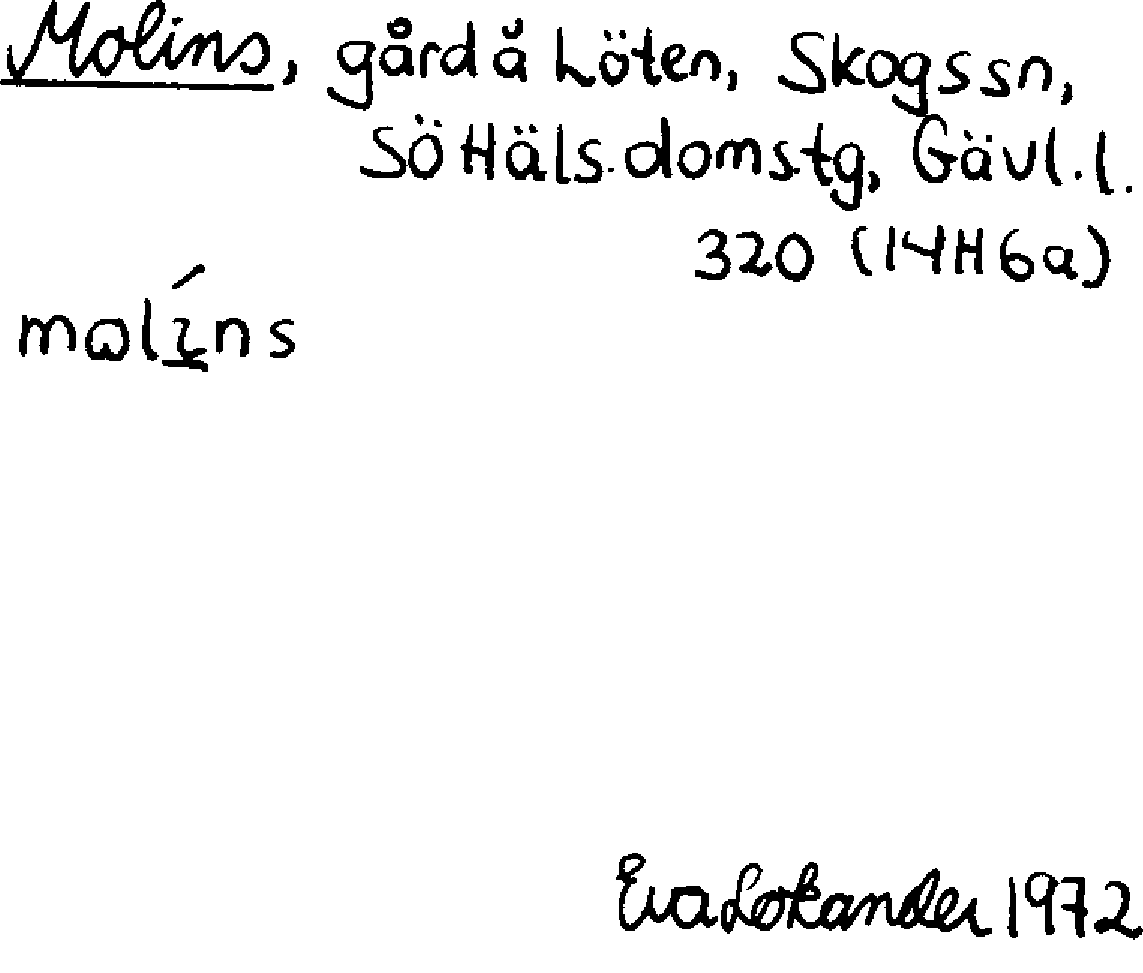 Molins, gård å Löten, Skogs sn,
Sö Häls. domstg, Gävl. l.
320 (14H6a)
mωlíns
Eva Lokander 1972